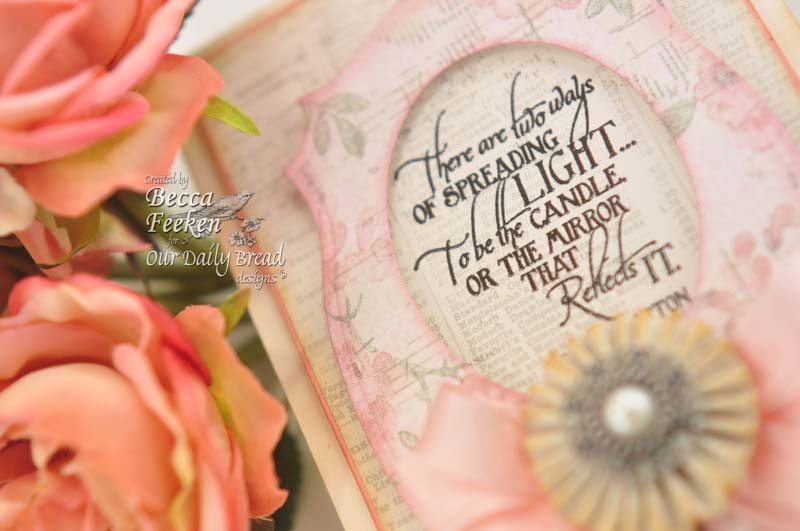 There are two ways
OF SPREADING
LIGHT...
To be the CANDLE,
OR THE MIRROR
THAT Reflects IT.
TON
Created by
Becca
Feeken
for
Our Daily Bread
designs ©